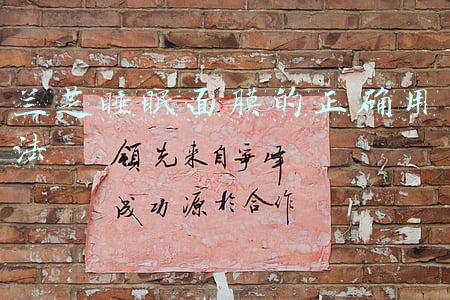 兰芝睡眠面膜的正确用
法
领先来自争峰
成功源于合作